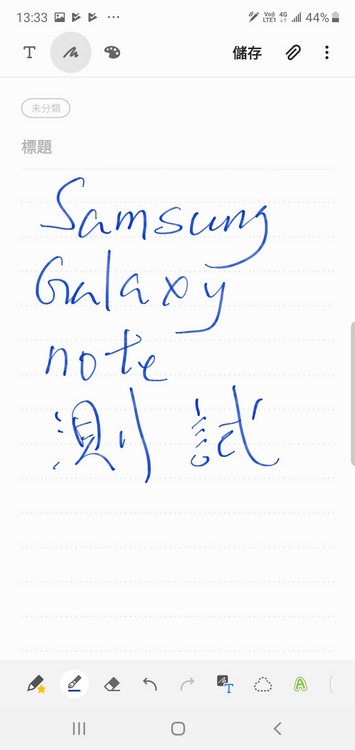 13:33 ... Vo)) LTE1 4G 44%
T 儲存
未分類
標題
Samsung
Galaxy
note
測試
T A